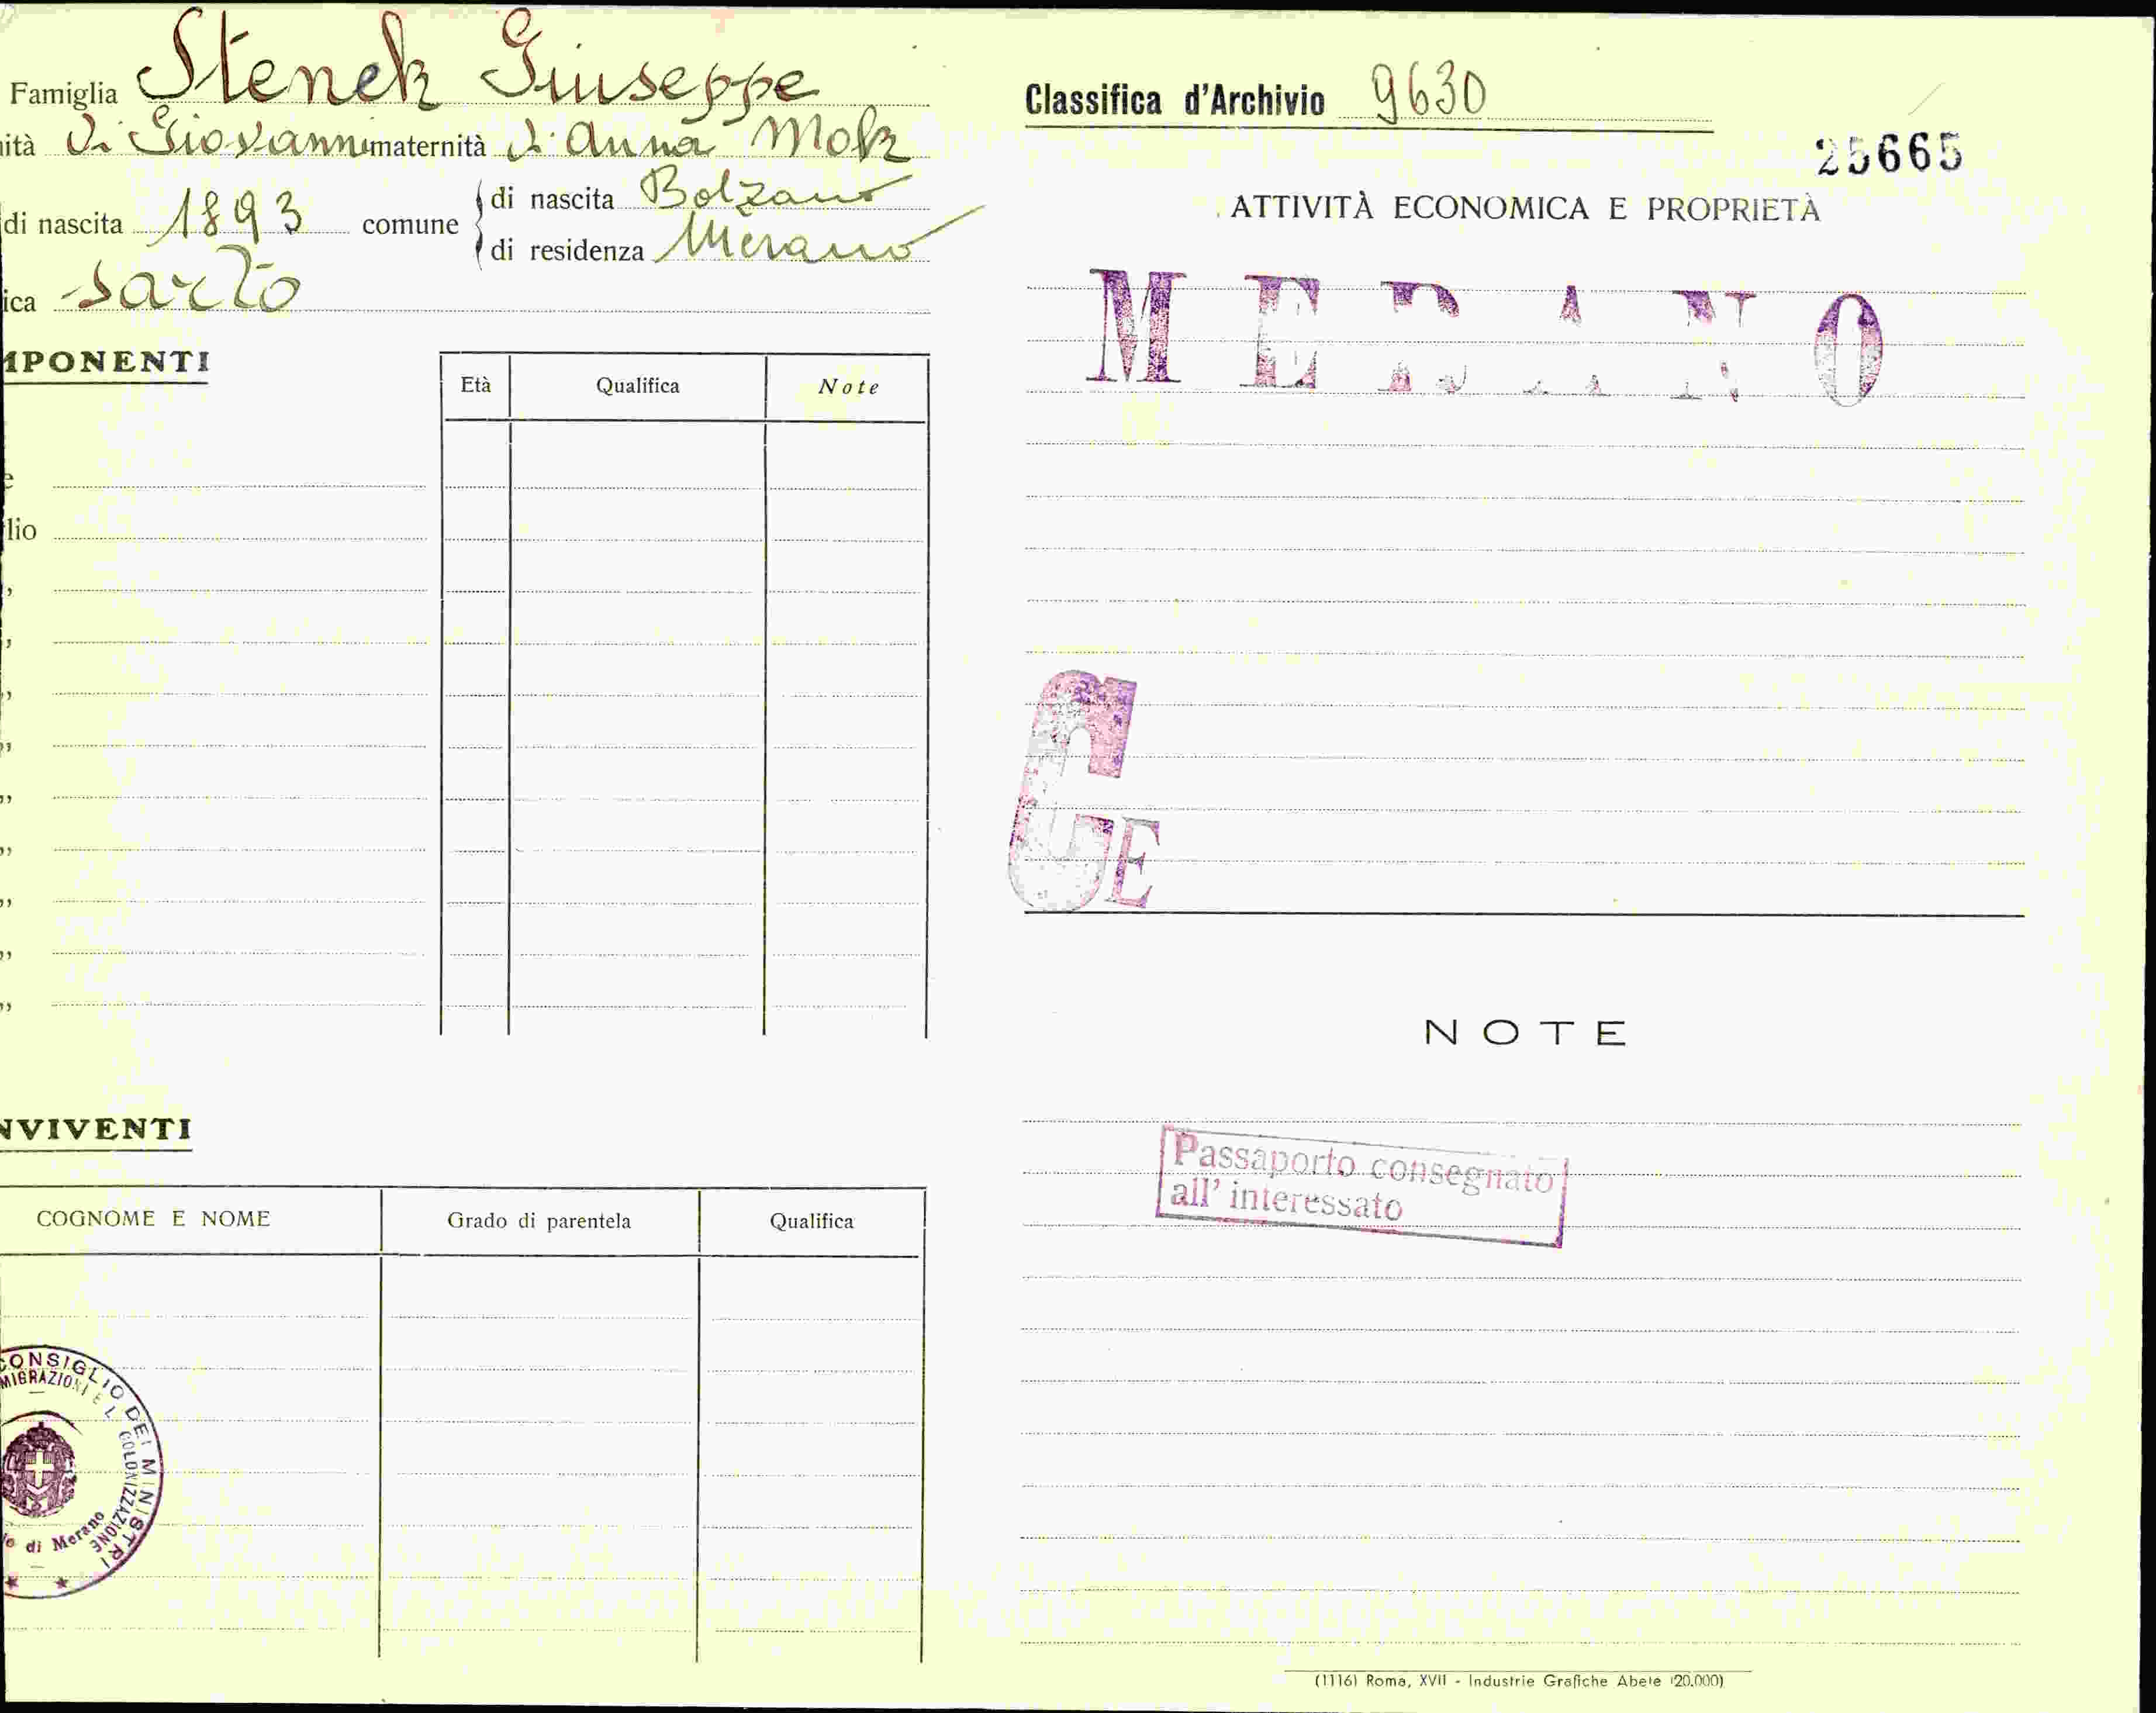 Famiglia Stenek Giuseppe
ità di Giovanni maternità di Anna Molz
di nascita 1893 comune di nascita Bolzano
di residenza Merano
ica sarto
MPONENTI
Età Qualifica Note
e
lio
NVIVENTI
COGNOME E NOME Grado di parentela Qualifica
CONSIGLIO DEI MINISTRI
MIGRAZIONI E L COLONIZZAZIONE
di Merano
Classifica d'Archivio 9630
25665
ATTIVITÀ ECONOMICA E PROPRIETÀ
MERANO
G E
NOTE
Passaporto consegnato
all' interessato
(1116) Roma, XVII - Industrie Grafiche Abete (20.000)